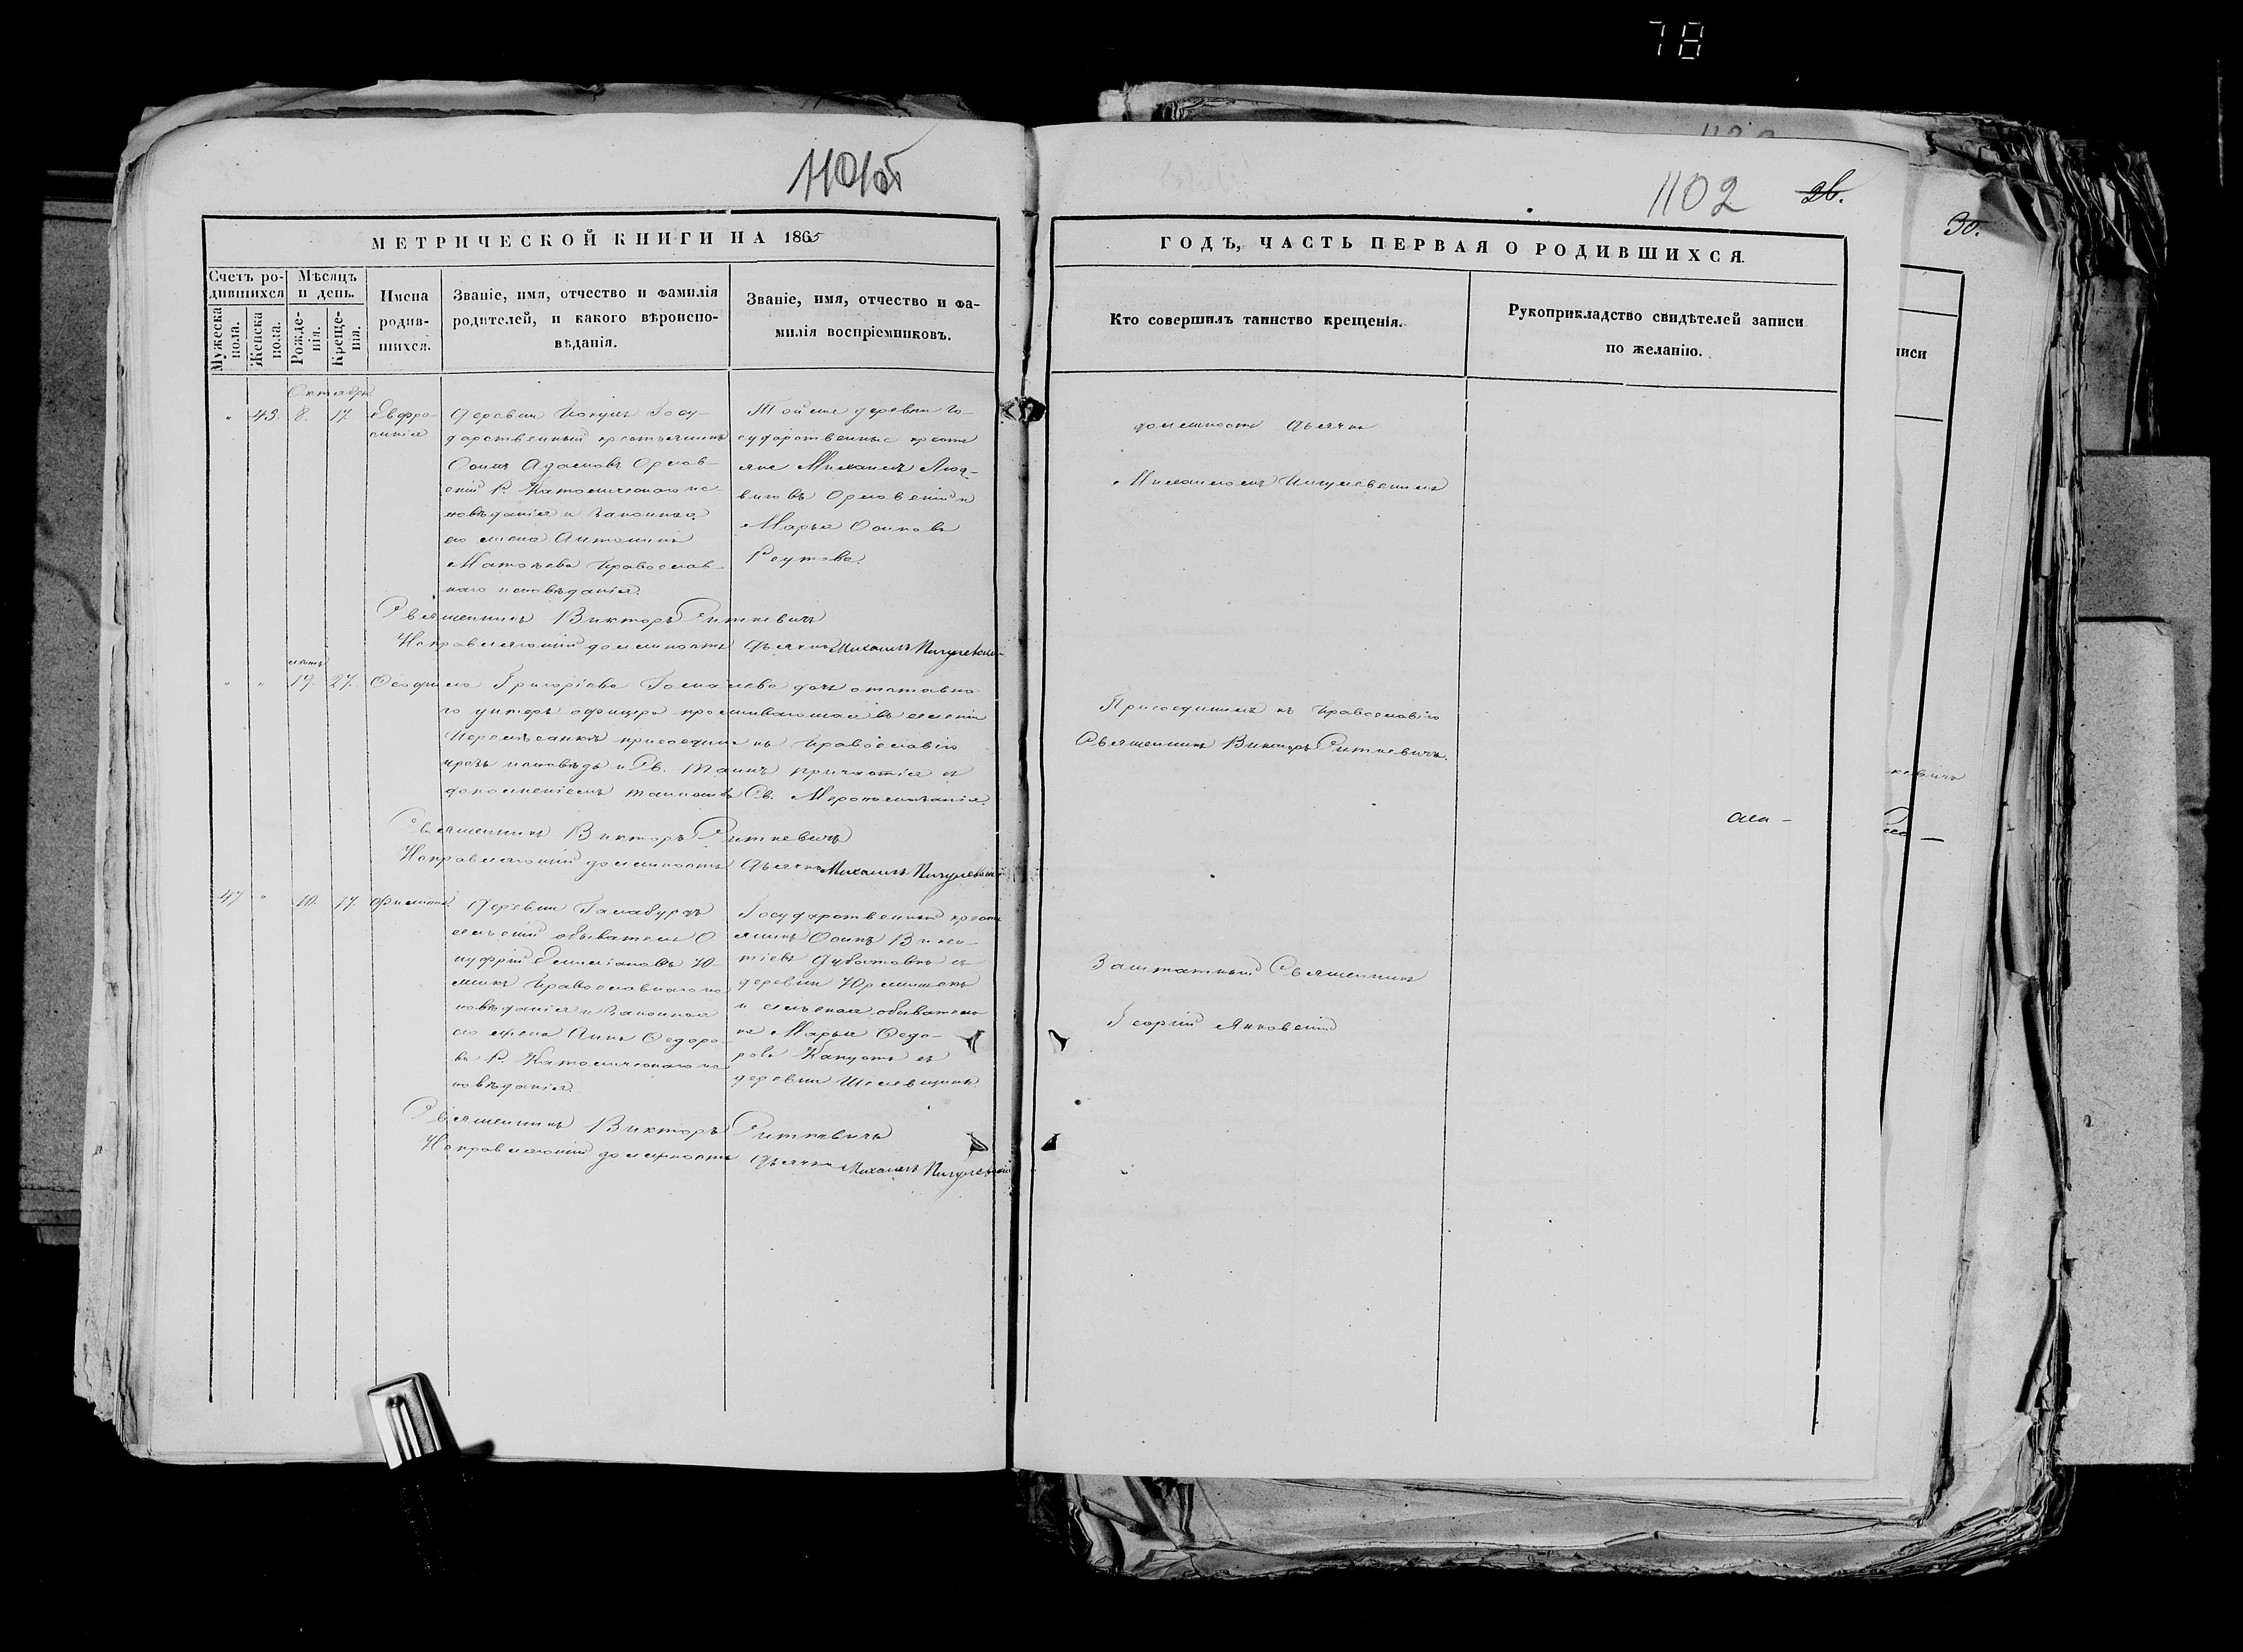 78
1101об
1102 26.
30.
МЕТРИЧЕСКОЙ КНИГИ НА 1865
ГОДЪ, ЧАСТЬ ПЕРВАЯ О РОДИВШИХСЯ.
Счетъ ро-
дившихся
Мѣсяцъ
и день.
Мужеска
пола.
Женска
пола.
Рожде-
нія.
Креще-
нія.
Имена
родив-
шихся.
Званіе, имя, отчество и фамилія
родителей, и какого вѣроиспо-
вѣданія.
Званіе, имя, отчество и фа-
милія воспріемниковъ.
Кто совершилъ таинство крещенія.
Рукоприкладство свидѣтелей записи
по желанію.
Октября
" 43. 8. 17. Евфро-
синія
Деревни Госу-
дарственный крестьянинъ
Осипъ Адамовъ Орлов-
скій Р. Католическаго ис-
повѣданія и законная
его жена Антонина
Матвѣева Православ-
наго исповѣданія.
Той же деревни Го-
сударственные кресть
яне Михаилъ Люд-
виговъ Орловскій и
Марья Осипова
Реутова.
должность Дьячка
Михаиломъ Пигулевскимъ
Священникъ Викторъ Ситкевичъ
Исправляющій должность Дьячка Михаилъ Пигулевскій
лѣтъ
" " 19. 27. Ѳеофила Григоріева дочь отставна-
го унтеръ офицера проживающая въ имѣніи
присоедин къ Православію
чрезъ исповѣдь и Св. Таинъ причастія съ
дополненіемъ таинства Св. Мѵропомазанія.
Присоединилъ къ Православію
Священникъ Викторъ Ситкевичъ.
Священникъ Викторъ Ситкевичъ
Исправляющій должность Дьячка Михаилъ Пигулевскій
47 " 10. 17. Филиппъ.
Деревни Галабурдъ
сельскій обыватель О
нуфрій Емиліановъ Ю-
Православнаго ис
повѣданія и законная
его жена Анна Ѳедоро-
ва Р. Католическаго ис
повѣданія.
Государственный кресть
янинъ Осипъ Викен-
тіевъ Дубатовка съ
деревни
и сельская обыватель
ка Марья Ѳедо-
рова Капуста съ
деревни
Заштатный Священникъ
Георгій Янковскій
Священникъ Викторъ Ситкевичъ
Исправляющій должность Дьячка Михаилъ Пигулевскій
иси
кевичъ